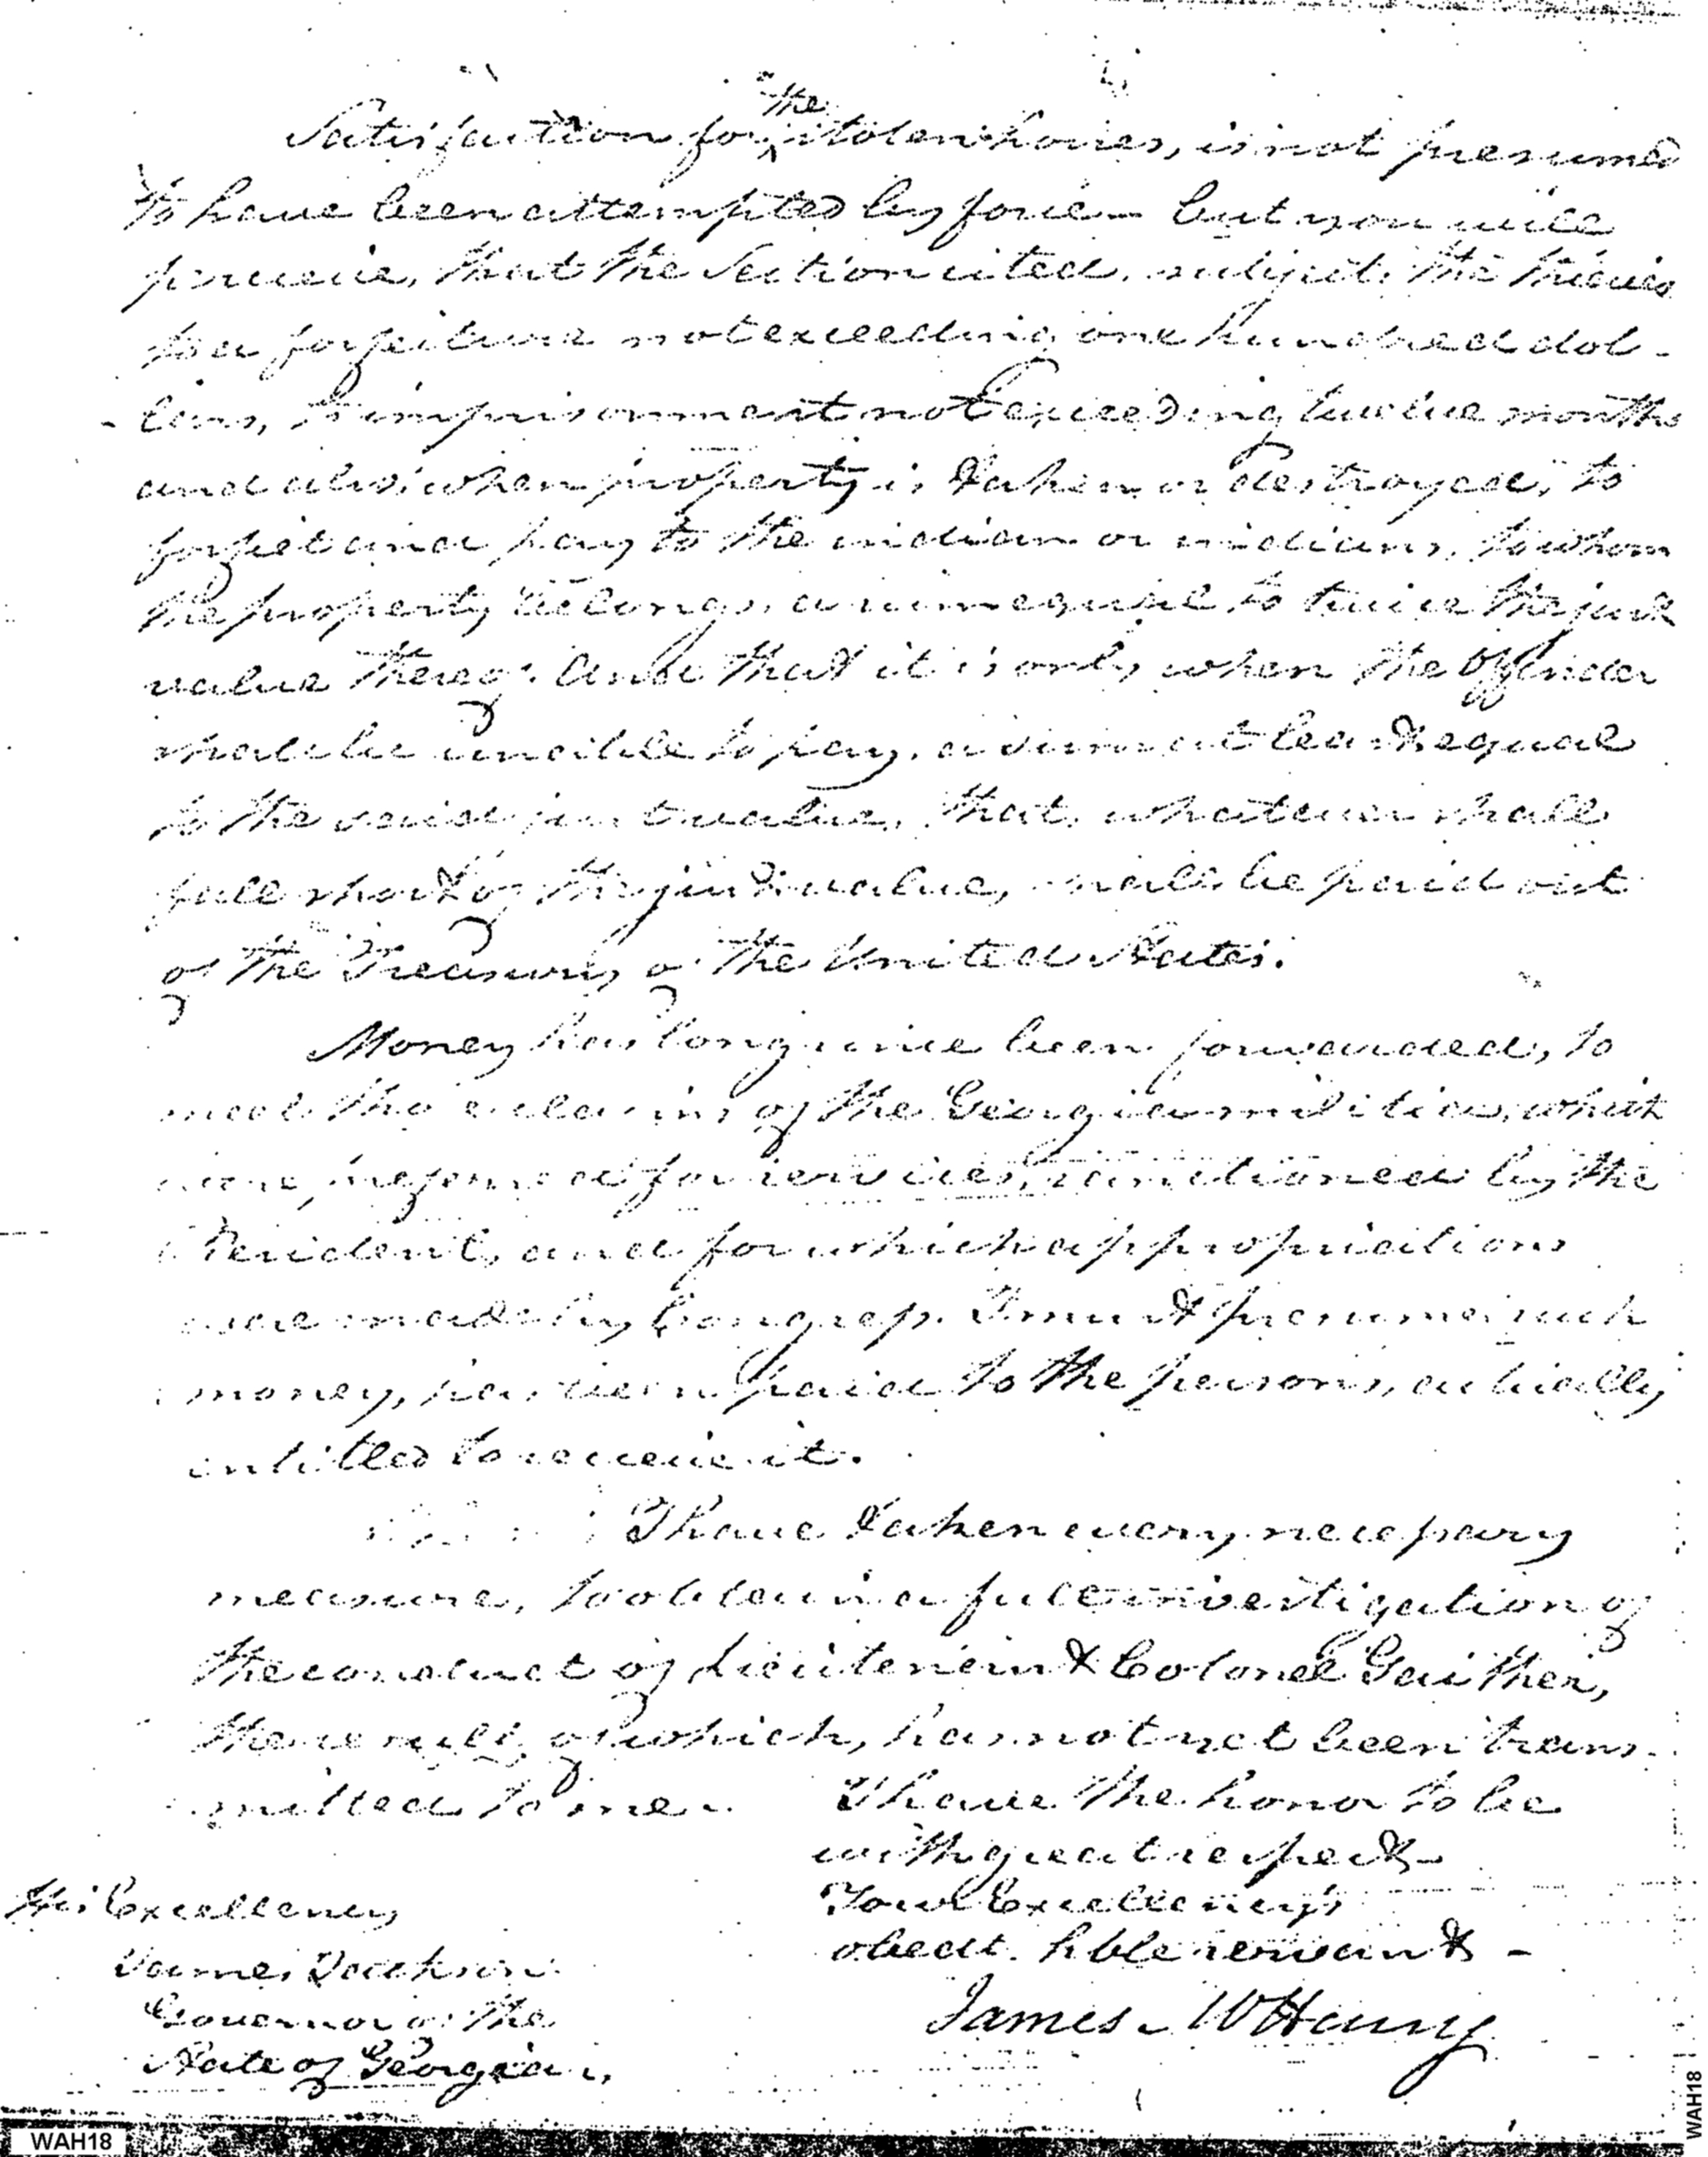 Satisfaction for the stolen horses, is not presumed
to have been attempted by force - but you will
perceive, that the Section cited, subjects the thieves
to a forfeiture not exceeding one hundred dol-
-lars, & imprisonment not exceeding twelve months
and also, when property is taken or destroyed, to
forfeit and pay to the indian or indians, to whom
the property belongs, a sum equal to twice the just
value thereof: And that it is only when the offender
shall be unable to pay, a sum at least equal
to the said just value, that, whatever shall
fall short of the just value, shall be paid out
of the Treasury of the United States.
Money has long since been forwarded, to
meet the claims of the Georgia militia, which
were for services, sanctioned by the
President, and for which appropriations
were made by Congress. I must presume such
money, has been paid to the persons, actually
entitled to receive it.
I have taken every necessary
measure, to obtain a full investigation of
the conduct of Lieutenant Colonel Gaither,
the result of which, has not yet been trans-
-mitted to me.
I have the honor to be
with great respect -
Your Excellency's
obedt. hble servant -
James McHenry
His Excellency
James Jackson
Governor of the
State of Georgia.
WAH18
WAH18